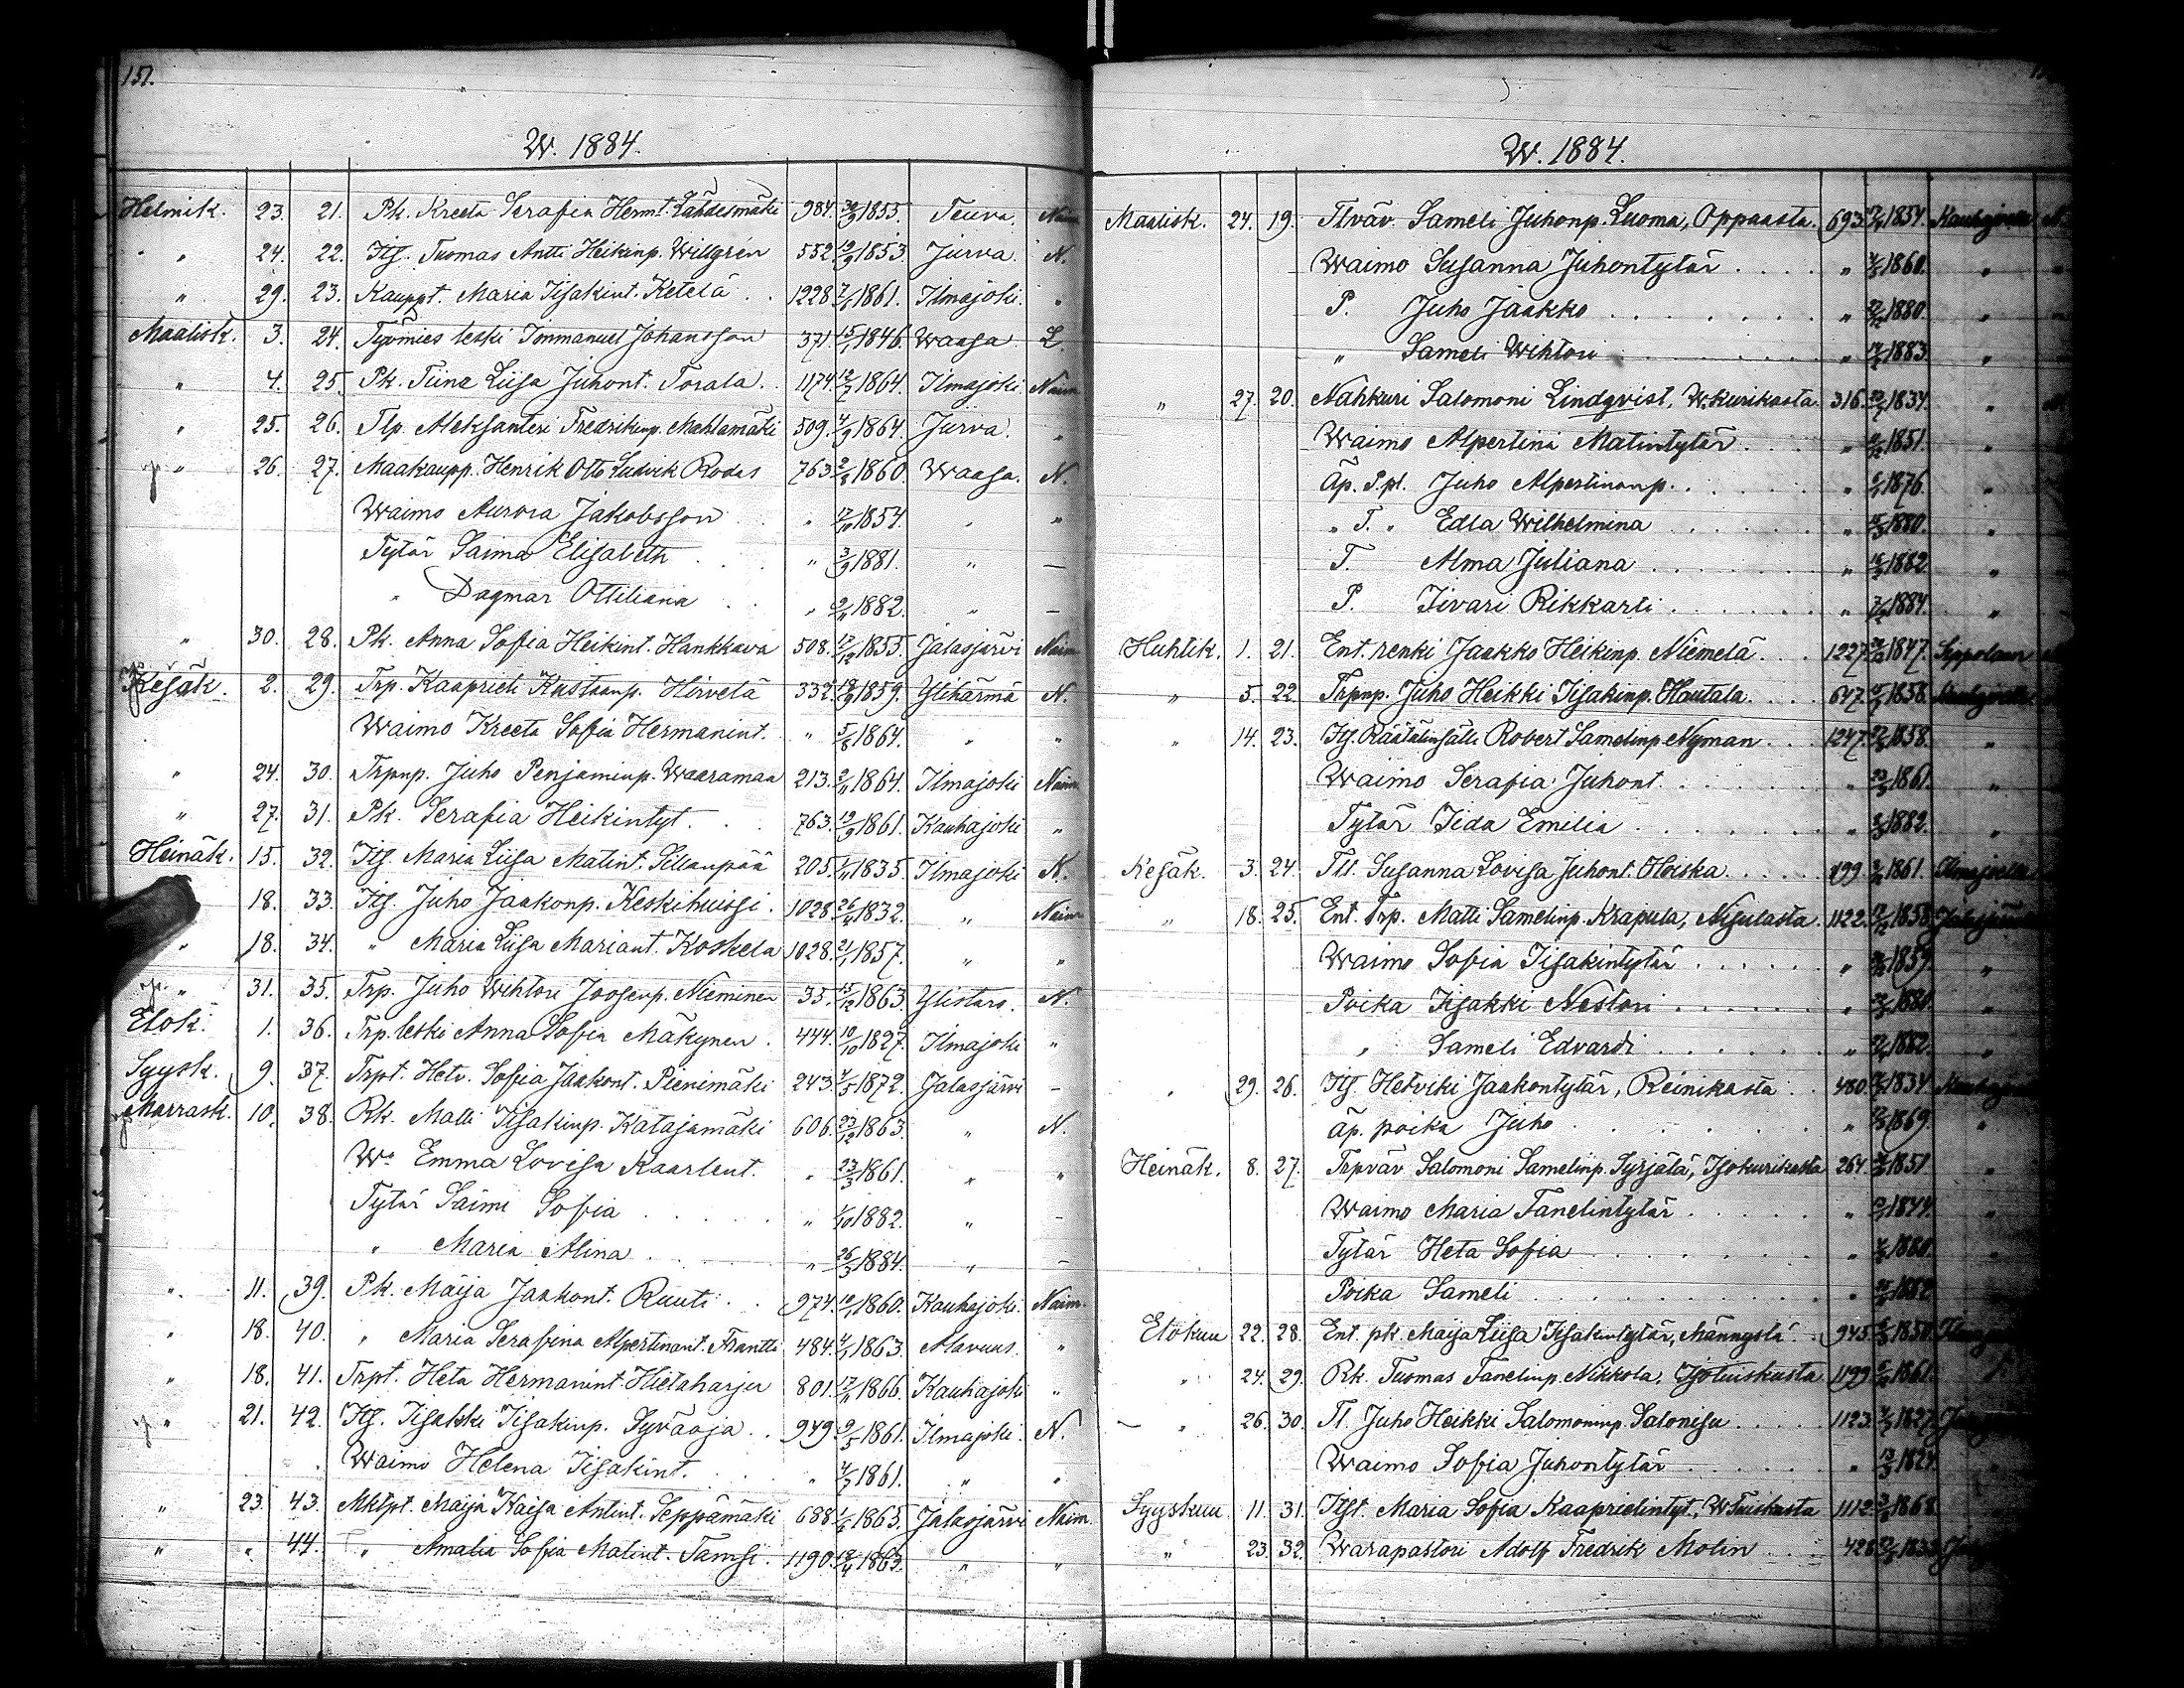 151.
W. 1884.
Helmik. 23. 21. Pk. Kreeta Serafia Hermt. Lähdesmäki 984. 1855. Teuva. Naim
" 24. 22. Its. Tuomas Antti Heikinp. Willgrén 552. 12/9 1853. Jurva. N.
" 29. 23. Kauppt. Maria Iisakint. Ketelä . . 1228. 1861. Ilmajoki. "
Maalisk. 3. 24. Työmies leski Immanuel Johansson 371. 15/1 1846. Waasa L.
" 4. 25. Pk. Tiina Liisa Juhont. Torala . 1174. 12/7 1864. Ilmajoki Naim
" 25. 26. Tlp. Aleksanteri Fredrikinp. Mahlamäki 509. 4/9 1864. Jurva. "
" 26. 27. Maakaupp. Henrik Otto Ludvik Rodas 763. 1860. Waasa. N.
Waimo Aurora Jakobsson . . " 1854. " "
Tytär Saima Elisabeth . . . " 3/9 1881. " —
" Dagmar Ottiliana . . " 1882. " —
" 30. 28. Pk. Anna Sofia Heikint. Hankkava 508. 17/12 1855. Jalasjärvi Naim
Kesäk. 2. 29. Trp. Kaaprieli Kustaanp. Hirvelä 332. 1859. Ylihärmä N.
Waimo Kreeta Sofia Hermanint. " 5/8 1864. " "
" 24. 30. Trpnp. Juho Penjaminp. Waaramaa 213. 2/11 1864. Ilmajoki Naim
" 27. 31. Pk. Serafia Heikintyt. . . . 763. 19/9 1861. Kauhajoki "
Heinäk. 15. 32. Its. Maria Liisa Matint. Sillanpää 205. 1/11 1835. Ilmajoki N.
18. 33. Its. Juho Jaakonp. Keskihuissi . 1028. 1832. " Naim
" 18. 34. " Maria Liisa Mariant. Koskela 1028. 21/1 1857. " "
" 31. 35. Trp. Juho Wihtori Joosepp. Nieminen 35. 15/12 1863. Ylistaro. N.
Elok. 1. 36. Trp. leski Anna Sofia Mäkynen . 444. 10/10 1827. Ilmajoki "
Syysk. 9. 37. Trpt. Hetv. Sofia Jaakont. Pienimäki 243. 4/5 1872. Jalasjärvi -
Marrask. 10. 38. Rk. Matti Iisakinp. Katajamäki 606. 23/12 1863. " N.
W:o Emma Lovisa Kaarlent. " 23/3 1861. " "
Tytär Saimi Sofia . . . . . " 1/10 1882. " -
" Maria Alina . . . " 26/3 1884. " -
" 11. 39. Pk. Maija Jaakont. Ruuti . . 974. 19/1 1860. Kauhajoki. Naim.
" 18. 40. " Maria Serafina Alpertinant. Frantti 484. 4/1 1863. Alavuus. "
" 18. 41. Trpt. Heta Hermanint. Hietaharju 801. 1866. Kauhajoki "
" 21. 42. Its. Iisakki Iisakinp. Syväoja . . 949. 9/5 1861. Ilmajoki. N.
Waimo Helena Iisakint. . . . " 4/7 1861. " "
" 23. 43. Mktpt. Maija Kaisa Antint. Seppämäki 688. 1865. Jalasjärvi Naim.
" " 44. " Amalia Sofia Matint. Tamsi . 1190. 1863. " "
W. 1884.
Maalisk. 24. 19. Tlväv. Sameli Juhonp. Luoma, Oppaasta. 693. 1854. N.
Waimo Susanna Juhontytär . . . . " 1860. " "
P. Juho Jaakko . . . . . . . " 1880. "
" Sameli Wihtori . . . . . . . " 1883. "
" 27. 20. Nahkuri Salomoni Lindqvist, W.kurikasta 316. 1834. "
Waimo Alpertina Matintytär . . . " 1851. "
Äp. P.pl. Juho Alpertinanp. . . . . " 1876. "
" T. " Edla Wilhelmina . . . . . " 1880. "
T. Alma Juliana . . . . . . . " 1882. "
P. Iivari Rikkarti . . . . . . " 1884. "
Huhtik. 1. 21. Ent. renki Jaakko Heikinp. Niemelä . . . 1227. 1847.
" 5. 22. Trpnp. Juho Heikki Iisakinp. Hautala. . . . 647. 1858.
" 14. 23. Its. Räätälinsälli Robert Samelinp. Nyman . . . 1247. 1858. "
Waimo Serafia Juhont. . . . . . . " 1861. "
Tytär Iida Emilia . . . . . . . " 1882. "
Kesäk. 3. 24. Tlt. Susanna Lovisa Juhont. Hoiska . . . . . 199. 1861. Ilmajoella
" 18. 25. Ent. Trp. Matti Samelinp. Krapula, Nisulasta. 1122. 1858.
Waimo Sofia Iisakintytär . . . . . " 1859. "
Poika Iisakki Nestori . . . . . . " 1880. "
" Sameli Edvardi . . . . . . " 1882. "
" 29. 26. Its. Hetviki Jaakontytär, Reinikasta . . 480. 1834.
Äp. poika Juho . . . . . . . " 1869. "
Heinäk. 8. 27. Trpväv Salomoni Samelinp. Syrjälä, Isokurikasta 264. 1851. "
Waimo Maria Tanelintytär . . . . . " 1844. "
Tytär Heta Sofia . . . . . . . " 1880. "
Poika Sameli . . . . . . . . . " 1882.
Elokuu 22. 28. Ent. pk. Maija Liisa Iisakintytär, Männystä . . 945. 1850.
" 24. 29. Rk. Tuomas Tanelinp. Nikkola, Isotuiskusta 1199. 1861.
" 26. 30. Tl. Juho Heikki Salomoninp. Salonisu . . . . . 1123. 1827.
Waimo Sofia Juhontytär . . . . . . "
Syyskuu 11. 31. Itst. Maria Sofia Kaaprielintyt, W.Tuiskusta 1112. 1868.
" 23. 32. Warapastori Adolf Fredrik Molin . . . 428.